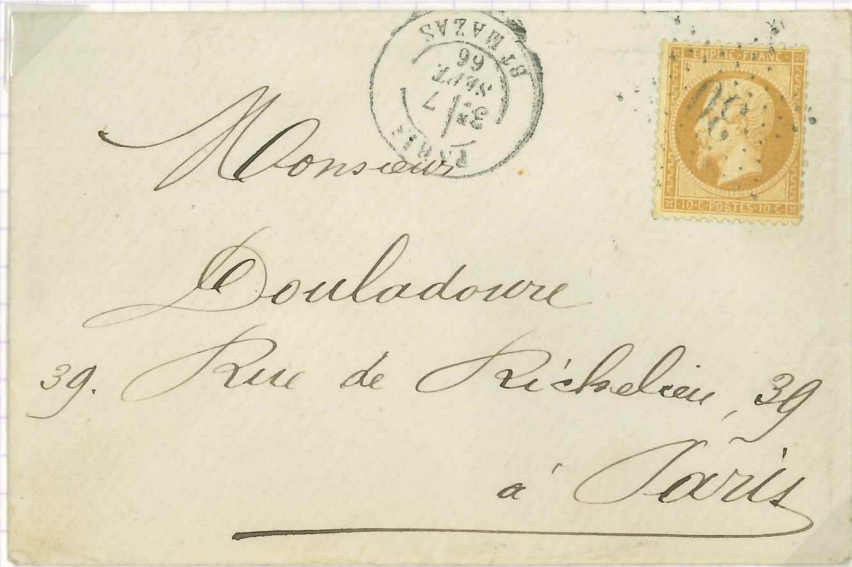 PARIS
3E
7
SEPT
66
Bt MAZAS
EMPIRE FRANC
30
10·C·POSTES·10·C
Monsieur
Douladoure
39. Rue de Richelieu, 39
à Paris